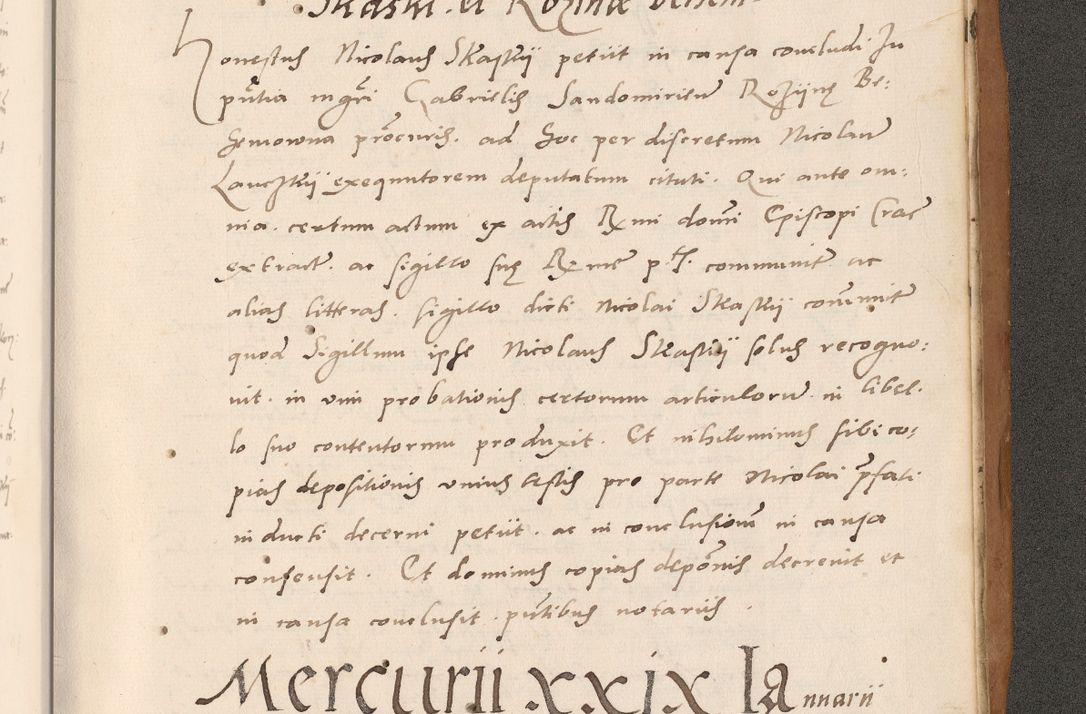 Skaski . et Rozinae
Honestus Nicolaus Skaskij petiit in causa concludi In
pñtia mgri Gabrielis Sandomirien Rozijnę Be:
hemowna procuris . ad hoc per discretum Nicolaum
Lauczkij exequutorem deputatum citati . Qui ante om:
nia . certum actum ex actis Rxmi domini Episcopi Crac
extract . ac sigillo suę Rxme p. T. communit ac
alias litteras . sigillo dicti Nicolai Skaskij communit
quod Sigillum ipse Nicolaus Skaskij solus recogno:
uit . in vim probationis certorum articulorum in libel.
lo suo contentorum produxit . Et nihilominus sibi co:
pias depositionis vnius testis pro parte Nicolai prefati
inducti decerni petiit . ac in conclusionem in causa
consensit . Et dominus copias deponis decreuit et
in causa conclusit . pñtibus notariis .
Mercurii . xxix Ianuarii